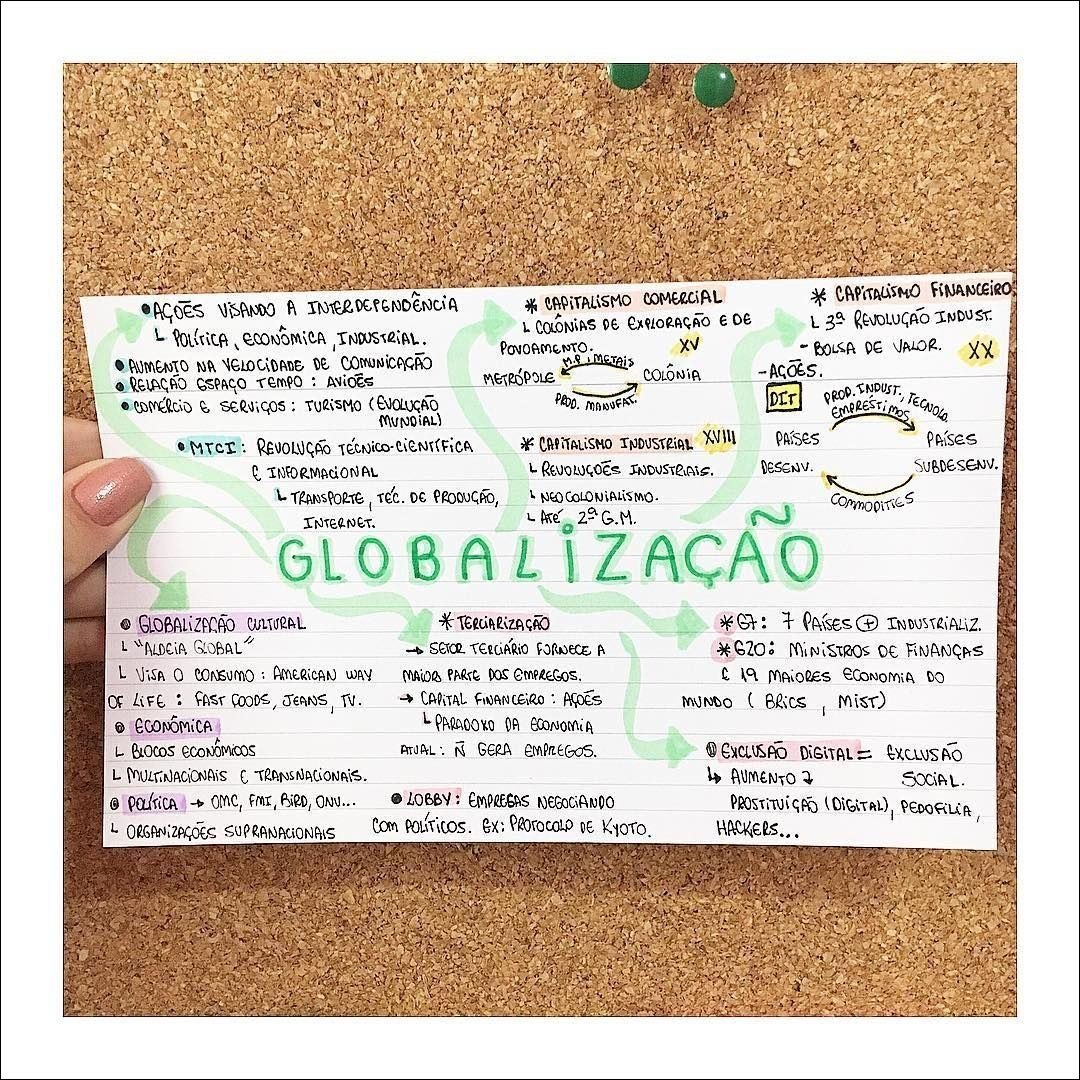 •AÇÕES VISANDO A INTERDEPENDÊNCIA
└ POLÍTICA, ECONÔMICA, INDUSTRIAL.
•AUMENTO NA VELOCIDADE DE COMUNICAÇÃO
•RELAÇÃO ESPAÇO TEMPO: AVIÕES
•COMÉRCIO E SERVIÇOS: TURISMO (EVOLUÇÃO
MUNDIAL)
•MTCI: REVOLUÇÃO TÉCNICO-CIENTÍFICA
E INFORMACIONAL
└ TRANSPORTE, TÉC. DE PRODUÇÃO,
INTERNET.
* CAPITALISMO COMERCIAL
└ COLÔNIAS DE EXPLORAÇÃO E DE
POVOAMENTO.
XV
M.P., METAIS
METRÓPOLE COLÔNIA
PROD. MANUFAT.
* CAPITALISMO INDUSTRIAL XVIII
└ REVOLUÇÕES INDUSTRIAIS.
└ NEOCOLONIALISMO.
└ ATÉ 2ª G.M.
* CAPITALISMO FINANCEIRO
└ 3ª REVOLUÇÃO INDUST.
- BOLSA DE VALOR. XX
-AÇÕES.
DIT
PROD. INDUST., TECNOLO.
EMPRÉSTIMOS
PAÍSES PAÍSES
DESENV. SUBDESENV.
COMMODITIES
GLOBALIZAÇÃO
• GLOBALIZAÇÃO CULTURAL
└ "ALDEIA GLOBAL"
└ VISA O CONSUMO: AMERICAN WAY
OF LIFE: FAST FOODS, JEANS, TV.
• ECONÔMICA
└ BLOCOS ECONÔMICOS
└ MULTINACIONAIS E TRANSNACIONAIS.
• POLÍTICA → OMC, FMI, BIRD, ONU...
└ ORGANIZAÇÕES SUPRANACIONAIS
* TERCIARIZAÇÃO
→ SETOR TERCIÁRIO FORNECE A
MAIOR PARTE DOS EMPREGOS.
→ CAPITAL FINANCEIRO: AÇÕES
└ PARADOXO DA ECONOMIA
ATUAL: Ñ GERA EMPREGOS.
• LOBBY: EMPRESAS NEGOCIANDO
COM POLÍTICOS. EX: PROTOCOLO DE KYOTO.
*G7: 7 PAÍSES ⊕ INDUSTRIALIZ.
*G20: MINISTROS DE FINANÇAS
E 19 MAIORES ECONOMIA DO
MUNDO (BRICS, MIST)
• EXCLUSÃO DIGITAL = EXCLUSÃO
SOCIAL.
↳ AUMENTO
PROSTITUIÇÃO (DIGITAL), PEDOFILIA,
HACKERS...